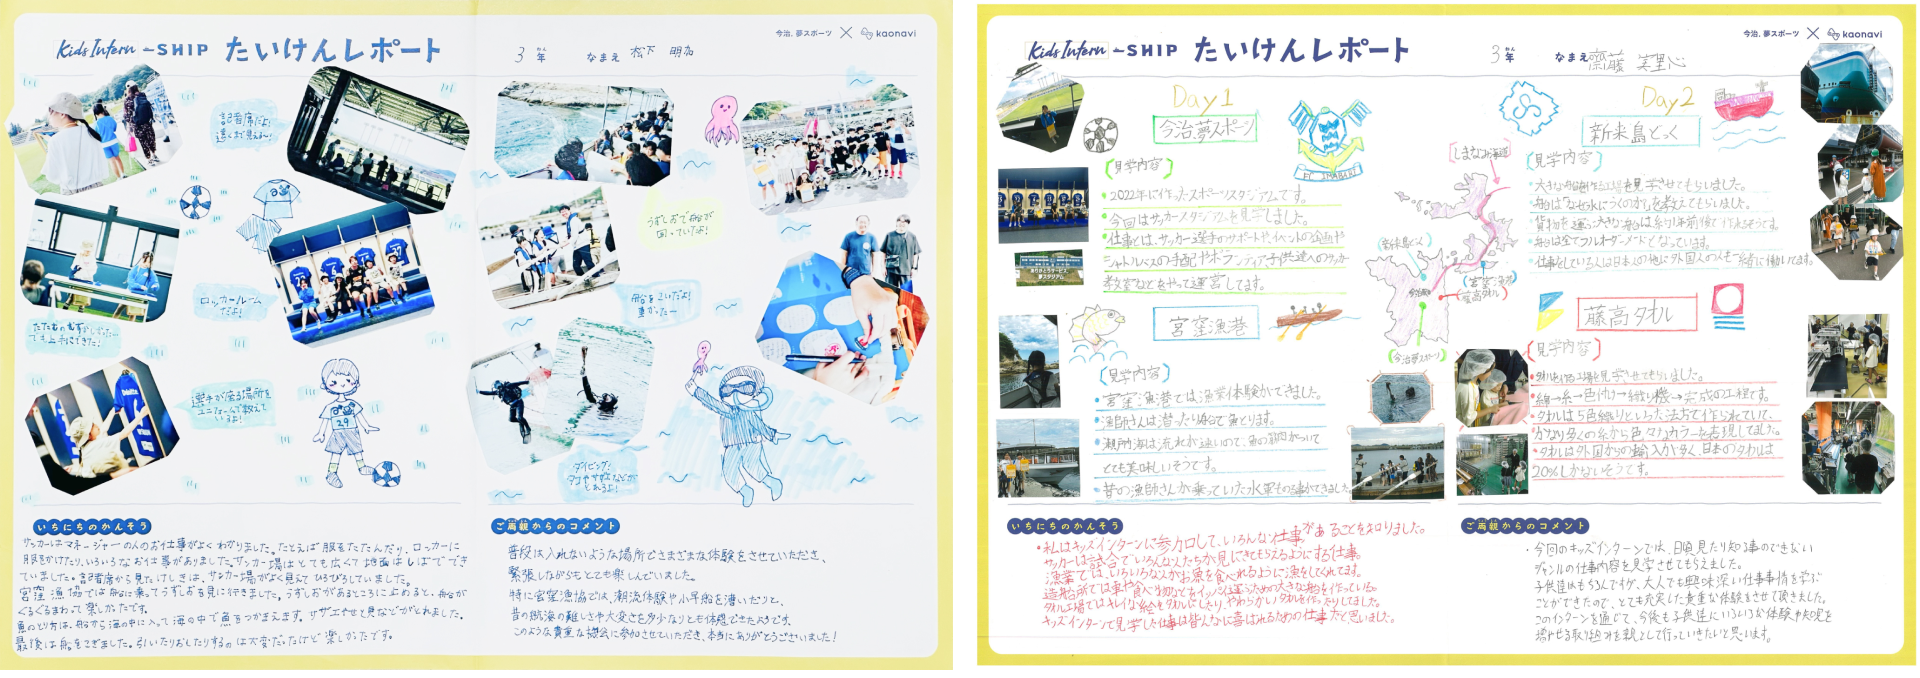 Kids Intern-SHIP たいけんレポート
3年 なまえ 松下
今治.夢スポーツ × kaonavi
記者席だよ!
遠くまで見える〜!
ロッカールーム
だよ!
たたむのむずかしかった…
でも上手にできた!
選手が座る場所を
ユニフォームで教えて
いるよ!
うずしおで船が
回っていたよ!
船をこいだよ!
重かったー
ダイビング!
タコやサザエなどが
とれるよ!
いちにちのかんそう
サッカーはマネージャーの人のお仕事がよくわかりました。たとえば服をたたんだり、ロッカーに
服をかけたり、いろいろなお仕事がありました。サッカー場はとても広くて地面はしばふでで
きていました。記者席から見たけしきは、サッカー場がよく見えてひろびろしていました。
宮窪漁協では船に乗ってうずしおを見に行きました。うずしおがあるところに止めると、船が
ぐるぐるまわって楽しかったです。
魚のとり方は、船から海の中に入って海の中で魚をつかまえます。サザエやせと貝などがとれました。
最後は船をこぎました。引いたりおしたりするのは大変だったけど楽しかったです。
ご両親からのコメント
普段は入れないような場所でさまざまな体験をさせていただき、
緊張しながらもとても楽しんでいました。
特に宮窪漁協では、潮流体験や小早船を漕いだりと、
昔の航海の難しさや大変さを多少なりとも体感できたようです。
このような貴重な機会に参加させていただき、本当にありがとうございました!
Kids Intern-SHIP たいけんレポート
3年 なまえ 齋藤
今治.夢スポーツ × kaonavi
Day1
今治.夢スポーツ
見学内容
・2022年に作ったスポーツスタジアムです。
・今回はサッカースタジアムを見学しました。
・仕事とは、サッカー選手のサポートや、イベントの企画や
シャトルバスの手配やボランティア子供達へのサッカー
教室などをやって運営してます。
FC IMABARI
ありがとうサービス.
夢スタジアム
宮窪漁港
見学内容
・宮窪漁港では漁業体験ができました。
・漁師さんは潜ったり船で魚をとります。
・潮所海は流れが速いので、魚の筋肉がついて
とても美味しいそうです。
・昔の漁師さんが乗っていた水軍もの
しまなみ海道
新来島どっく
宮窪漁港
藤高タオル
今治市
今治夢スポーツ
Day2
新来島どっく
見学内容
・大きな船を創る工場を見学させてもらいました。
・船はなぜ水にうくのかを教えてもらいました。
・貨物を運ぶ大きな船は約1年前後で作れるそうです。
・船は全てフルオーダーメードとなっています。
・仕事をしている人は日本人の他に外国人の人も一緒に働いてます。
藤高タオル
見学内容
・タオルを作る工場を見学させてもらいました。
・綿→糸→色付け→織り機→完成の工程です。
・タオルは5色織りといった方法で作られていて、
かなり多くの糸から色々なカラーを表現してました。
・タオルは外国からの輸入が多く、日本のタオルは
20%しかないそうです。
いちにちのかんそう
・私はキッズインターンに参加して、いろんな仕事があることを知りました。
サッカーは試合でいろんな人たちが見にきてもらえるようにする仕事。
漁業では、いろいろな人がお魚を食べれるように漁をしてくれてます。
造船所では車や食べ物などをイッパイ運ぶための大きな船を作っていた。
タオル工場ではキレイな絵をタオルにしたり、やわらかいタオルを作ったりしてました。
キッズインターンで見学した仕事は皆んなに喜ばれるための仕事だと思いました。
ご両親からのコメント
・今回のキッズインターンでは、日頃見たり知る事のできない
ジャンルの仕事内容を見学させてもらえました。
子供達はもちろんですが、大人でも興味深い仕事事情を学ぶ
ことができたので、とても充実した貴重な体験をさせて頂きました。
このインターンを通じて、今後も子供達にいろいろな体験や知見を
増やせる取り組みを親として行っていきたいと思います。